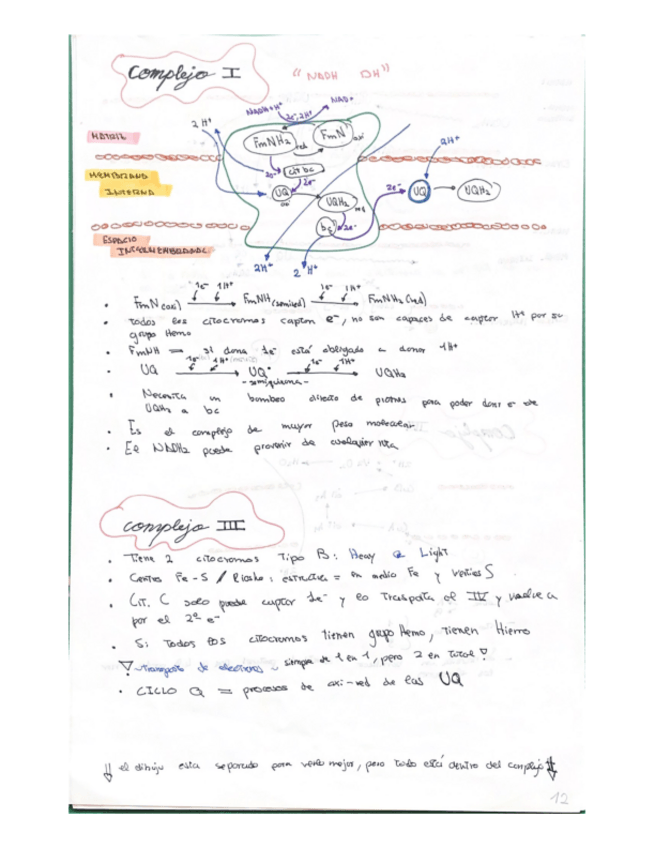 Complejo I
"NADH DH"
NADH+H+
2e-, 2H+
NAD+
2 H+
FmNH2 red
FmN oxi
2H+
MATRIZ
MEMBRANA
INTERNA
2e-
cit bc
2e-
UQ ox
UQH2 red
2e-
UQ
UQH2
bc
2e-
ESPACIO
INTERMEMBRANAL
2H+
2 H+
1e- 1H+ 1e- 1H+
• FmN (oxi) → FmNH (semired) → FmNH2 (red)
• todos los citocromos captan e-, no son capaces de captar H+ por su
grupo Hemo
• FmNH ⇒ si dona 1e- está obligado a donar 1H+
1e- 1H+ 1e- 1H+
• UQ → UQ• → UQH2
- semiquinona -
• Necesita un bombeo directo de protones para poder donar e- de
UQH2 a bc
• Es el complejo de mayor peso molecular
• El NADH2 puede provenir de cualquier ruta
complejo III
• Tiene 2 citocromos Tipo B: Heavy & Light
• Centro Fe-S / Rieske: estructura = en medio Fe y vértices S
• Cit. C solo puede captar 1e- y lo trasporta al IV y vuelve a
por el 2º e-
• Si todos los citocromos tienen grupo Hemo, tienen Hierro
Transporte de electrones ~ siempre de 1 en 1, pero 2 en total
• CICLO Q = procesos de oxi-red de las UQ
⇓ el dibujo esta separado para verlo mejor, pero todo está dentro del complejo ⇓
12